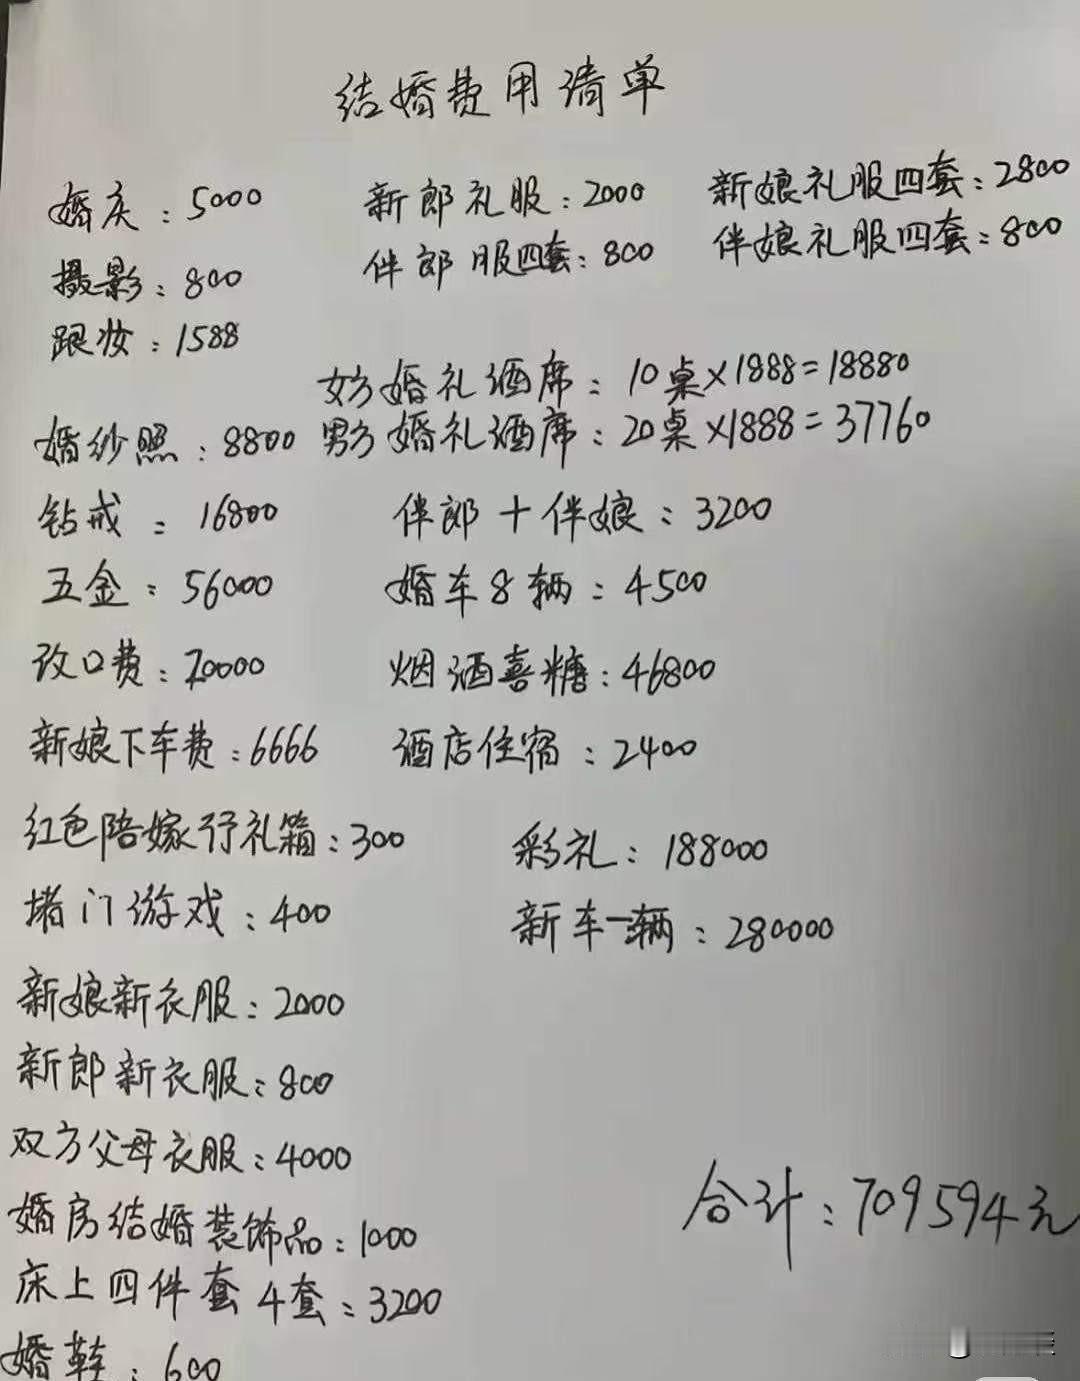 结婚费用清单
婚庆：5000 新郎礼服：2000 新娘礼服四套：2800
摄影：800 伴郎服四套：800 伴娘礼服四套：800
跟妆：1588
女方婚礼酒席：10桌×1888=18880
婚纱照：8800 男方婚礼酒席：20桌×1888=37760
钻戒：16800 伴郎+伴娘：3200
五金：56000 婚车8辆：4500
改口费：20000 烟酒喜糖：46800
新娘下车费：6666 酒店住宿：2400
红色陪嫁行礼箱：300 彩礼：188000
堵门游戏：400 新车一辆：280000
新娘新衣服：2000
新郎新衣服：800
双方父母衣服：4000
婚房结婚装饰品：1000
合计：709594元
床上四件套4套：3200
婚鞋：600